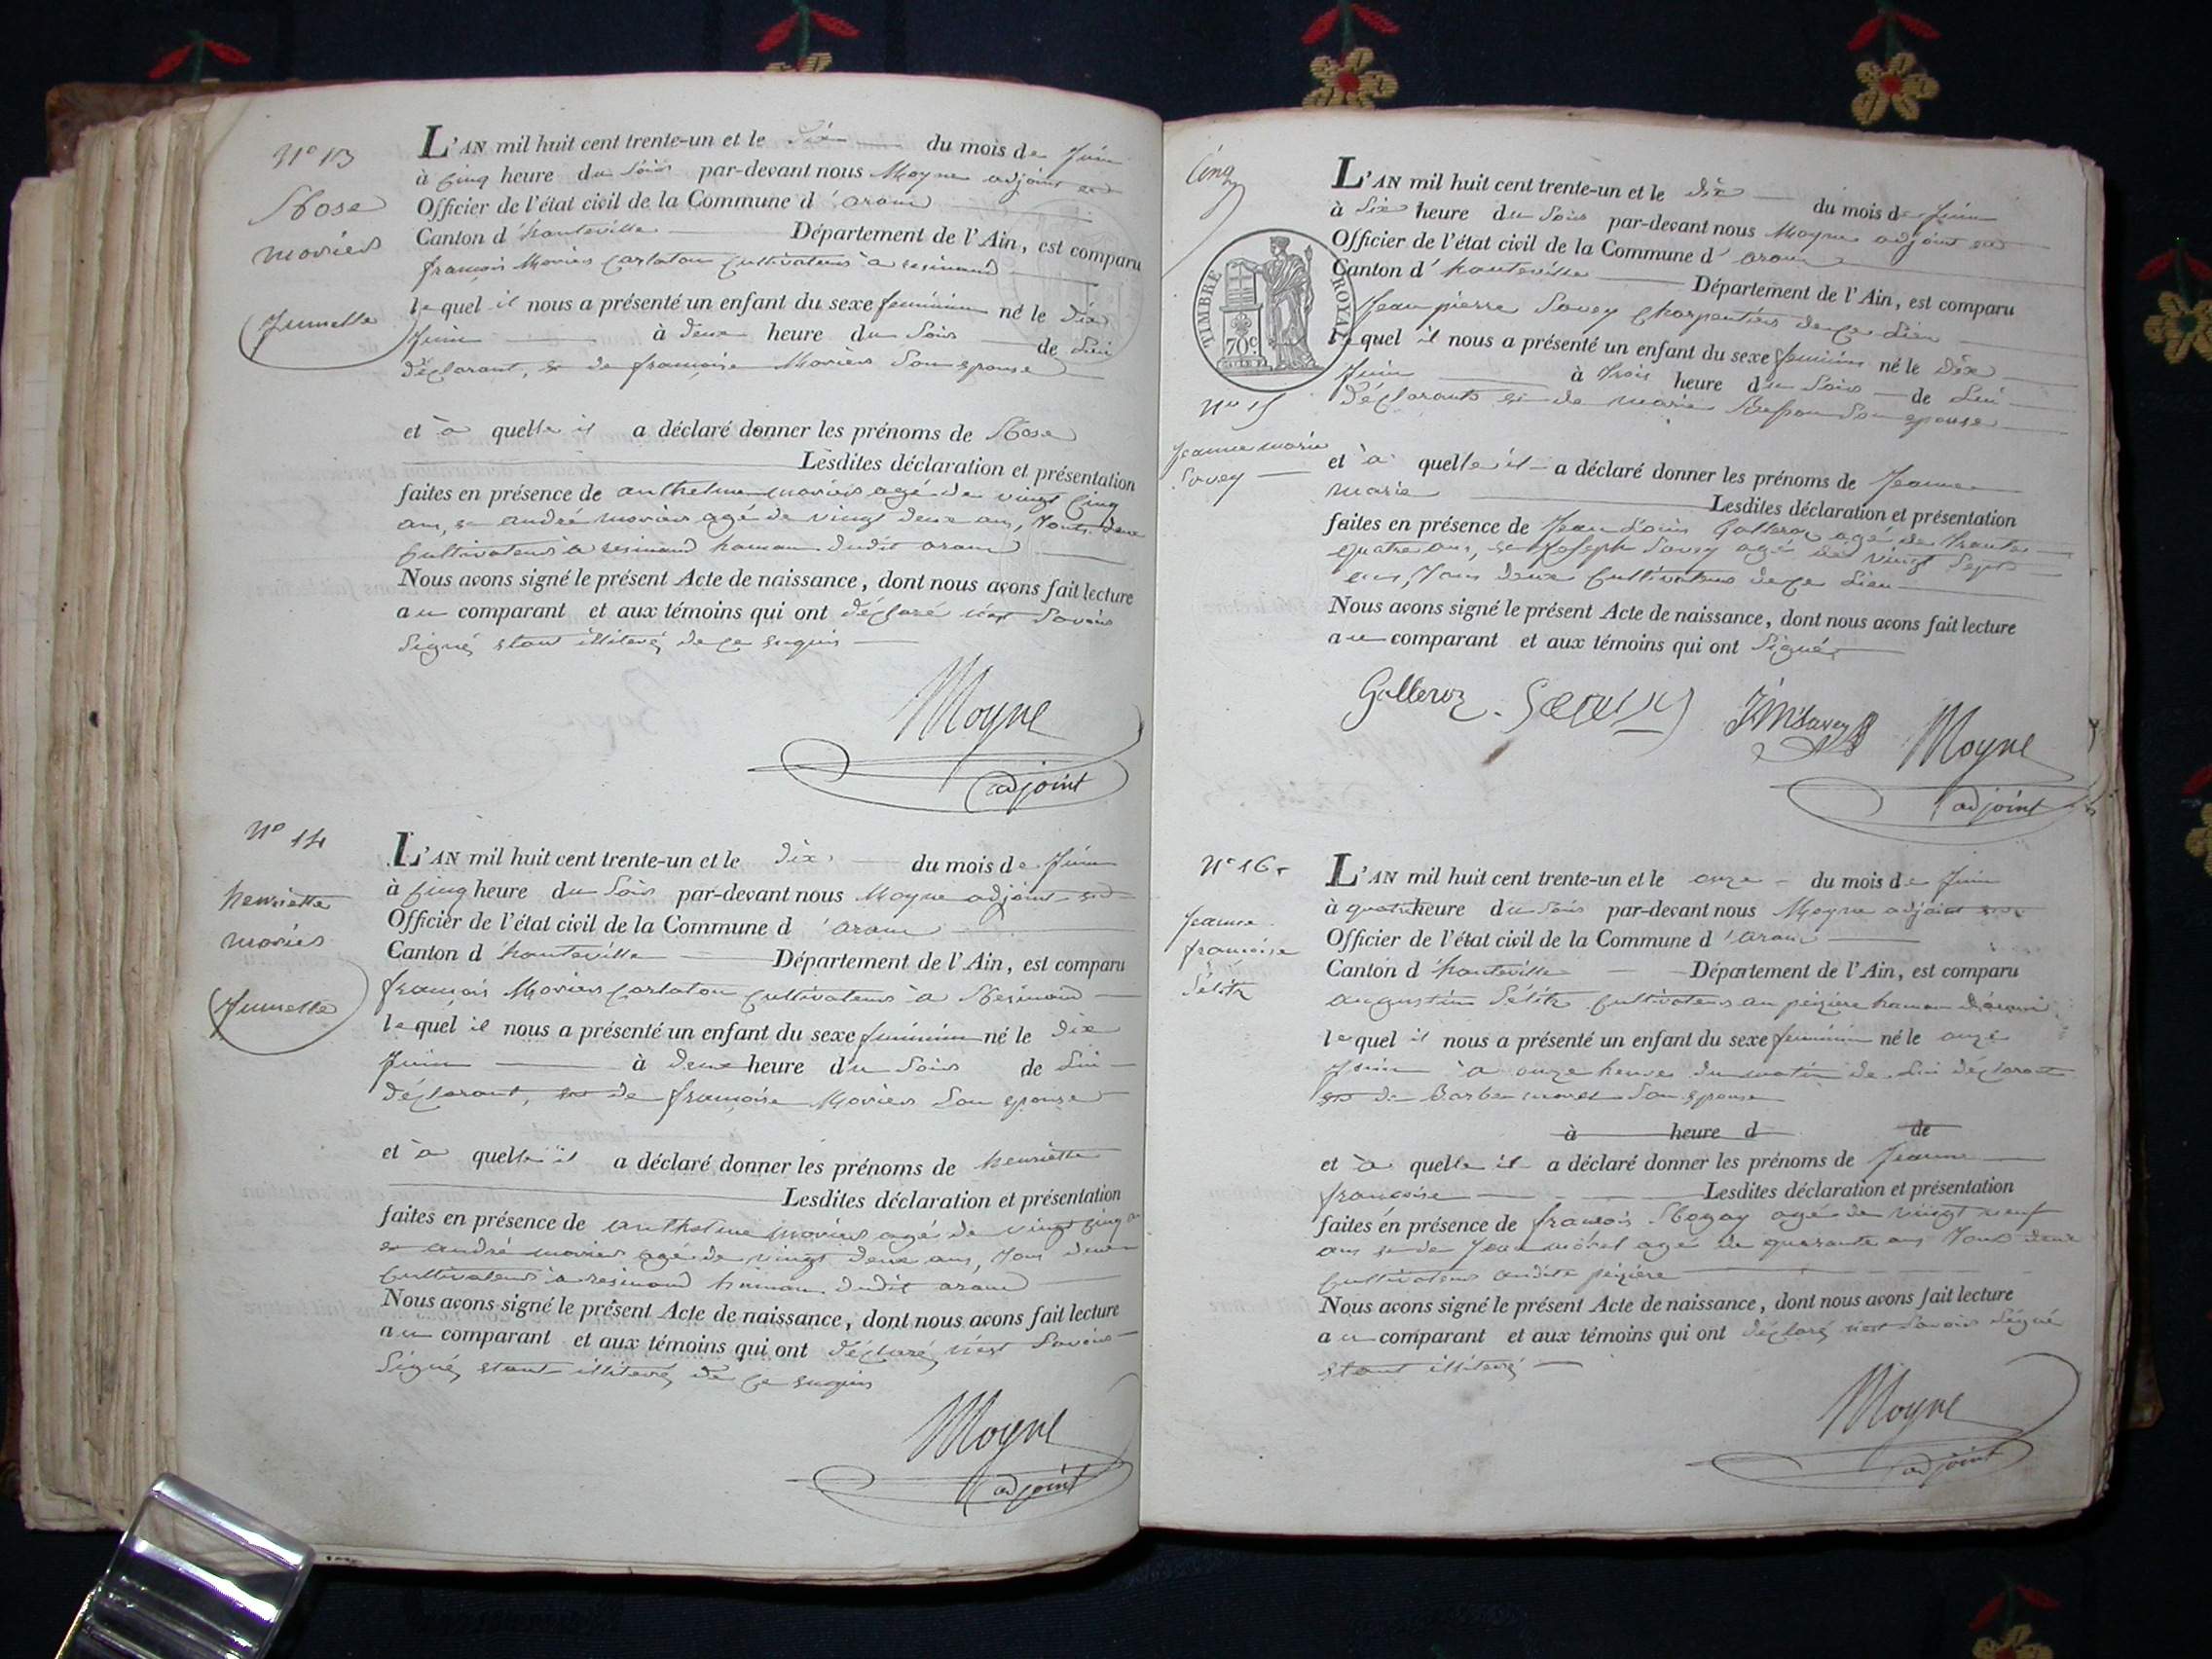 N° 13
Rose
moriers
Jumelle
L'AN mil huit cent trente-un et le dix du mois de Juin
à cinq heure du soir par-devant nous Moyne adjoint est
Officier de l'état civil de la Commune d'aranc
Canton d'hauteville Département de l'Ain, est comparu
françois Moriers carlaton cultivateur à resinand
lequel il nous a présenté un enfant du sexe feminin né le dix
Juin à deux heure du soir de lui
déclarant, et de françoise Moriers son epouse
et à quelle il a déclaré donner les prénoms de Rose
Lesdites déclaration et présentation
faites en présence de anthelme moriers agé de vingt cinq
ans, et andré moriers agé de vingt deux ans, tous deux
cultivateurs à resinand hamau dudit aranc
Nous avons signé le présent Acte de naissance, dont nous avons fait lecture
au comparant et aux témoins qui ont déclaré n'est savoir
signé, etant illiteré de ce enquis
Moyne
adjoint
N° 14
henriette
moriers
Jumelle
L'AN mil huit cent trente-un et le dix du mois de Juin
à cinq heure du soir par-devant nous Moyne adjoint est
Officier de l'état civil de la Commune d'aranc
Canton d'hauteville Département de l'Ain, est comparu
françois Moriers carlaton cultivateur à Resinand
lequel il nous a présenté un enfant du sexe feminin né le dix
Juin à deux heure du soir de lui
déclarant, et de françoise Moriers son epouse
et à quelle il a déclaré donner les prénoms de henriette
Lesdites déclaration et présentation
faites en présence de anthelme moriers agé de vingt cinq
et andré moriers agé de vingt deux ans, tous deux
cultivateurs à resinand hamau dudit aranc
Nous avons signé le présent Acte de naissance, dont nous avons fait lecture
au comparant et aux témoins qui ont déclaré n'est savoir
signé, etant illiteré de ce enquis
Moyne
adjoint
Cinq
TIMBRE ROYAL
70c
N° 15
Jeanne marie
Savey
L'AN mil huit cent trente-un et le dix du mois de Juin
à six heure du soir par-devant nous Moyne adjoint est
Officier de l'état civil de la Commune d'aranc
Canton d'hauteville Département de l'Ain, est comparu
Jean pierre Savey charpentier de ce lieu
lequel il nous a présenté un enfant du sexe feminin né le dix
Juin à trois heure du soir de lui
déclarant et de marie son epouse
et à quelle il a déclaré donner les prénoms de Jeanne
marie Lesdites déclaration et présentation
faites en présence de Jean Louis Galleroz agé de trante
quatre ans, et Joseph Savey agé de vingt sept
ans, tous deux cultivateurs de ce lieu
Nous avons signé le présent Acte de naissance, dont nous avons fait lecture
au comparant et aux témoins qui ont signé
Galleroz Savey
Moyne
adjoint
N° 16
Jeanne
françoise
L'AN mil huit cent trente-un et le onze du mois de Juin
à quatre heure du soir par-devant nous Moyne adjoint
Officier de l'état civil de la Commune d'aranc
Canton d'hauteville Département de l'Ain, est comparu
augustin cultivateur au pézière hamau d'aranc
lequel il nous a présenté un enfant du sexe feminin né le onze
Juin à onze heures du matin de lui déclarant
et de Barbe morel son epouse
à heure d de
et à quelle il a déclaré donner les prénoms de Jeanne
françoise Lesdites déclaration et présentation
faites en présence de françois agé de vingt neuf
ans et de Jean morel agé de quarante ans tous deux
cultivateurs audite pézière
Nous avons signé le présent Acte de naissance, dont nous avons fait lecture
au comparant et aux témoins qui ont déclaré n'est savoir signé
etant illiteré
Moyne
adjoint